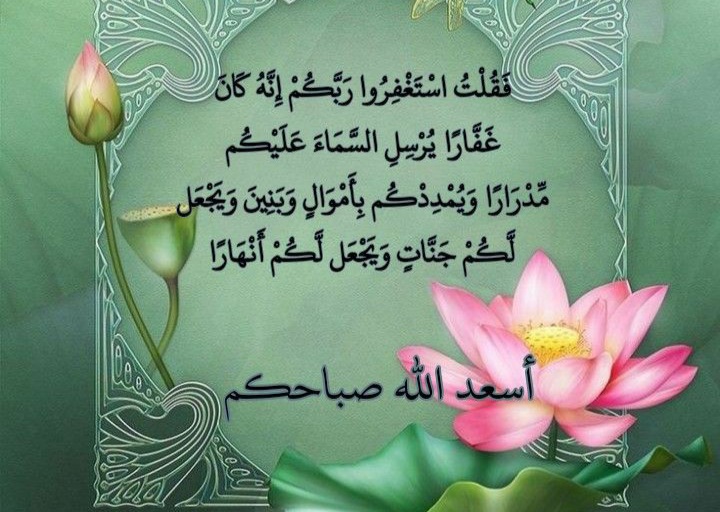 فَقُلْتُ اسْتَغْفِرُوا رَبَّكُمْ إِنَّهُ كَانَ
غَفَّارًا يُرْسِلِ السَّمَاءَ عَلَيْكُم
مِّدْرَارًا وَيُمْدِدْكُم بِأَمْوَالٍ وَبَنِينَ وَيَجْعَل
لَّكُمْ جَنَّاتٍ وَيَجْعَل لَّكُمْ أَنْهَارًا
أسعد الله صباحكم